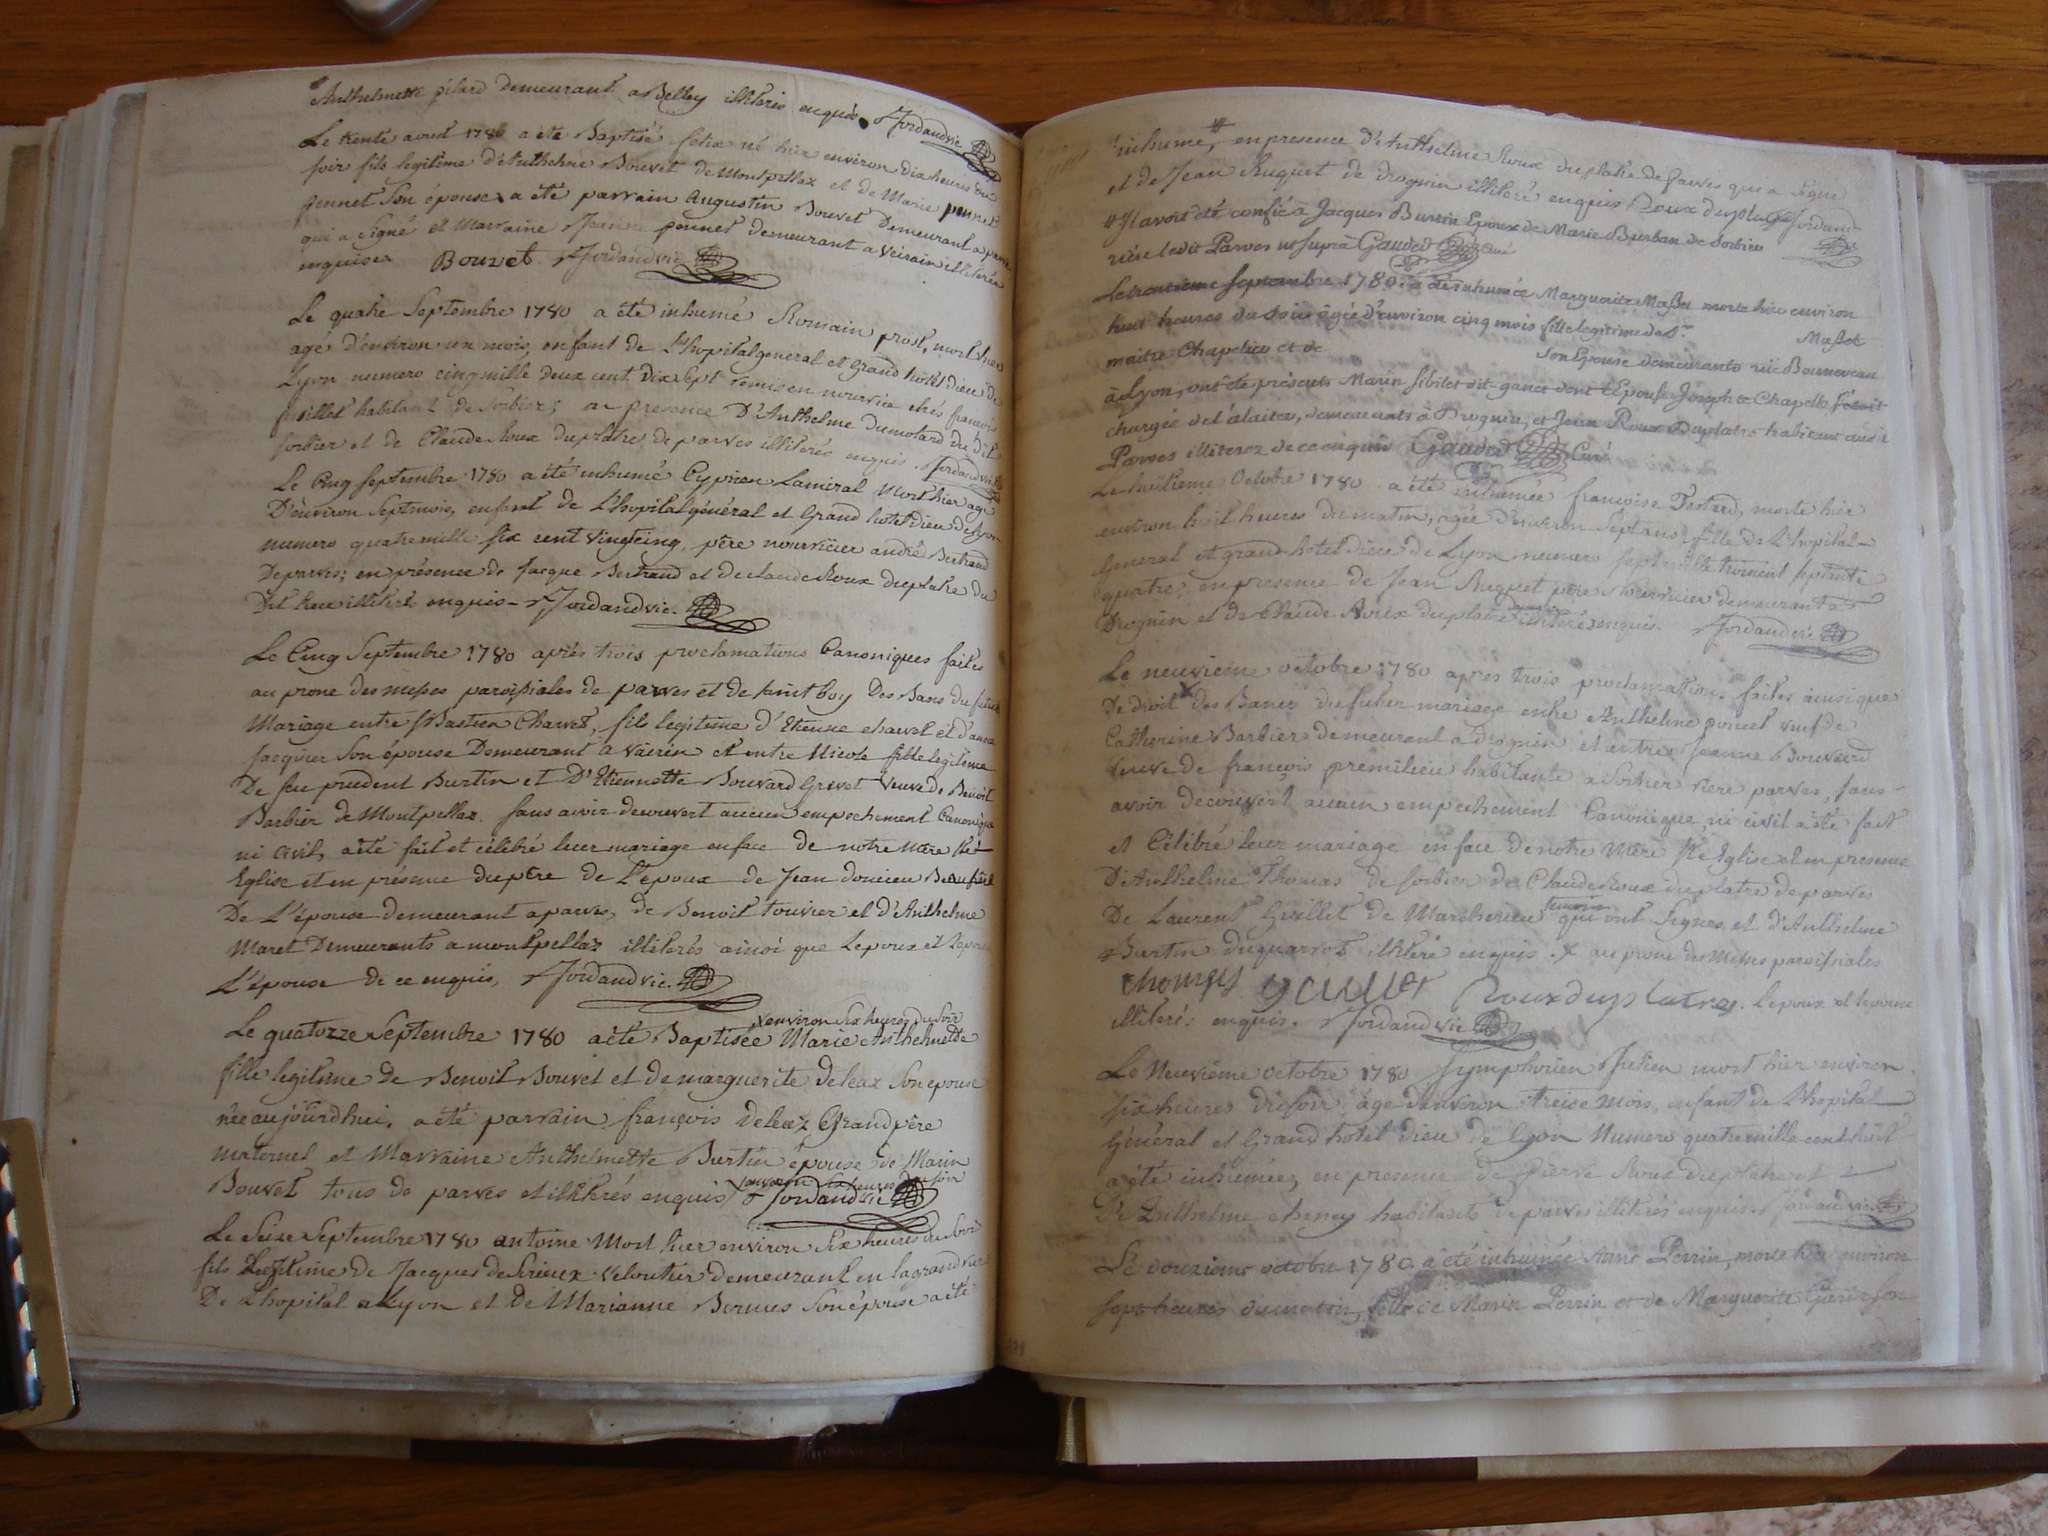 Anthelmette pilard Demeurant a Belley illiterés enquis. Jordand vic
Le trente aoust 1780 a été Baptisé felix né hier environ dix heures du
soir fils legitime d'Anthelme Bouvet de Montpellaz et de Marie ponnet
ponnet son épouse a été parrain Augustin Bouvet Demeurant a parve
qui a signé et Marraine ponnet demeurant a Veirain illiterée
enquise. Bouvet Jordand vic
Le quatre Septembre 1780 a été inhumé Romain prost, mort hier
agé d'environ un mois, enfant de L'hopital general et Grand hôtel dieu de
Lyon numero cinq mille deux cent dix sept remis en nourrice chés francois
guillet habitant de sorbier; en presence D'Anthelme dumolard du dit
sorbier et de Claude Roux duplatre de parves illiterés enquis. Jordand vic
Le Cinq septembre 1780 a été inhumé Cyprien Lamiral Mort hier agé
D'environ Sept mois, enfant de L'hopital général et Grand hotel dieu de Lyon
numero quatre mille six cent vingt cinq, père nourricier andré Bertrand
De parves; en présence de Jacque Bertrand et de claude Roux duplatre du
Dit lieu illiterés enquis - Jordand vic.
Le Cinq Septembre 1780 après trois proclamations Canoniques faites
au prone des messes paroissiales de parves et de saint boy Des Bans du futur
Mariage entre sBastien Charvet, fils legitime d'Etienne charvet et d'anne
Jacquier son épouse Demeurant à Vairin et entre Nicole fille legitime
De feu prudent Burtin et D'Etiennette Bouvard Grivet Veuve de Benoit
Barbier de Montpellaz. sans avoir decouvert aucun empechement Canonique
ni civil, a été fait et célébré leur mariage en face de notre mère ste
Eglise et en présence du père de L'époux de Jean doucieu Beaufrère
De L'épouse demeurant a parves, de Benoit touvier et d'Anthelme
Maret Demeurants a montpellaz illiterés ainsi que L'epoux et
L'épouse de ce enquis, Jordand vic.
x environ six heures du soir
Le quatorze Septembre 1780 a été Baptisée Marie Anthelmette
fille legitime de Benoit Bouvet et de marguerite deleaz son epouse
née aujourdhui, a été parrain françois deleaz Grand père
maternel et Marraine Anthelmette Burtin épouse de Marin
Bouvet tous de parves et illiterés enquis Jordand vic
Le Seize Septembre 1780 antoine Mort hier environ six heures du soir
fils Legitime de Jacques de Veloutier demeurant en la grand rue
De L'hopital a Lyon et de Marianne Bernus son épouse a été
inhumé, # en presence d'Anthelme Roux duplatre de parves qui a signé
et de Jean Ruguet de drognin illiteré enquis Roux duplatre Jordand
# Il avoit été confié a Jacques Burtin Epoux de Marie Burban de Sorbier
rière ledit Parves ut supra Gaudet Curé
Le trentieme septembre 1780. a été inhumée Marguerite Massot morte hier environ
huit heures du soir agée d'environ cinq mois fille legitime de Sr. Massot
maitre Chapelier et de son Epouse demeurants rue Bourneveau
à Lyon, ont été présents Marin sibilet dit ganet dont l'Epouse Joseph te Chapelle s'étoit
chargée de l'alaiter, demeurants à Drognin, et Jean Roux Duplatre habitant audit
Parves illiterez de ce enquis Gaudet Curé
Le huitieme Octobre 1780. a été inhumée francoise morte hier
environ huit heures du matin, agée d'environ sept ans, fille de L'hopital
General et grand hotel dieu de Lyon numero sept mille trois cent septante
quatre, en presence de Jean Ruguet père nourricier demeurant a
Drognin et de Claude Roux duplatre illiterés enquis. Jordand vic
Le neuvieme octobre 1780 apres trois proclamations faites ainsi que
De droit x des Bancs du futur mariage entre Anthelme poncet veuf de
Catherine Barbier demeurant a drognin et entre Jeanne Bouvard
veuve de françois premilieu habitante a Sorbier riere parves, sans
avoir decouvert aucun empechement Canonique, ni civil a été fait
et Célébré leur mariage en face de notre mère ste Eglise et en presence
D'Anthelme Thomas de sorbier de Claude Roux duplatre de parves
De Laurent Guillet de Marcherieu temoins qui ont signés, et d'Anthelme
Burtin illiteré enquis. x au prone des Messes paroissiales
thomas guillet Roux du platre. l'epoux et
illiterés enquis. Jordand vic
Le Neuvième octobre 1780 Symphorien Julien mort hier environ
six heures du soir, agé d'environ treise mois, enfant de L'hopital
Général et Grand hotel dieu de Lyon Numero quatre mille cent huit
a été inhumé, en presence de pierre Roux duplatre et
De Anthelme habitants de parves illiterés enquis. Jordand vic
Le douzieme octobre 1780. a été inhumée Anne Perrin, morte hier environ
sept heures du matin, fille de Marin Perrin et de Marguerite Guerin son